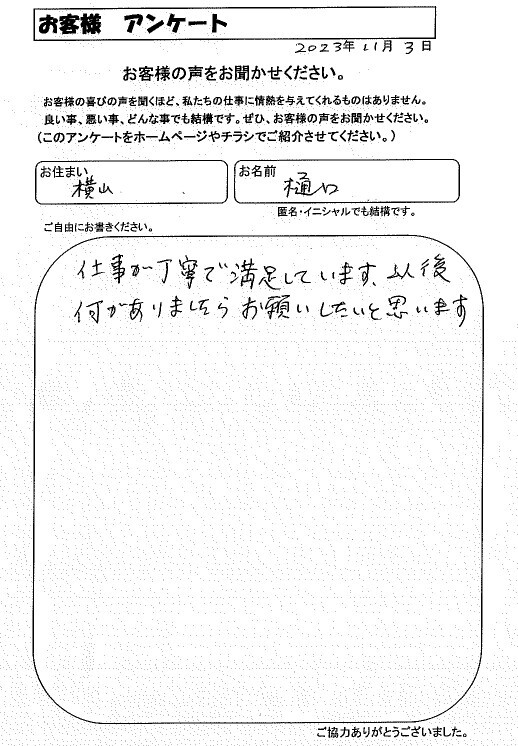 お客様 アンケート
2023年 11月 3日
お客様の声をお聞かせください。
お客様の喜びの声を聞くほど、私たちの仕事に情熱を与えてくれるものはありません。
良い事、悪い事、どんな事でも結構です。ぜひ、お客様の声をお聞かせください。
(このアンケートをホームページやチラシでご紹介させてください。)
お住まい 横山
お名前 樋口
匿名・イニシャルでも結構です。
ご自由にお書きください。
仕事が丁寧で満足しています、以後
何かありましたらお願いしたいと思います
ご協力ありがとうございました。